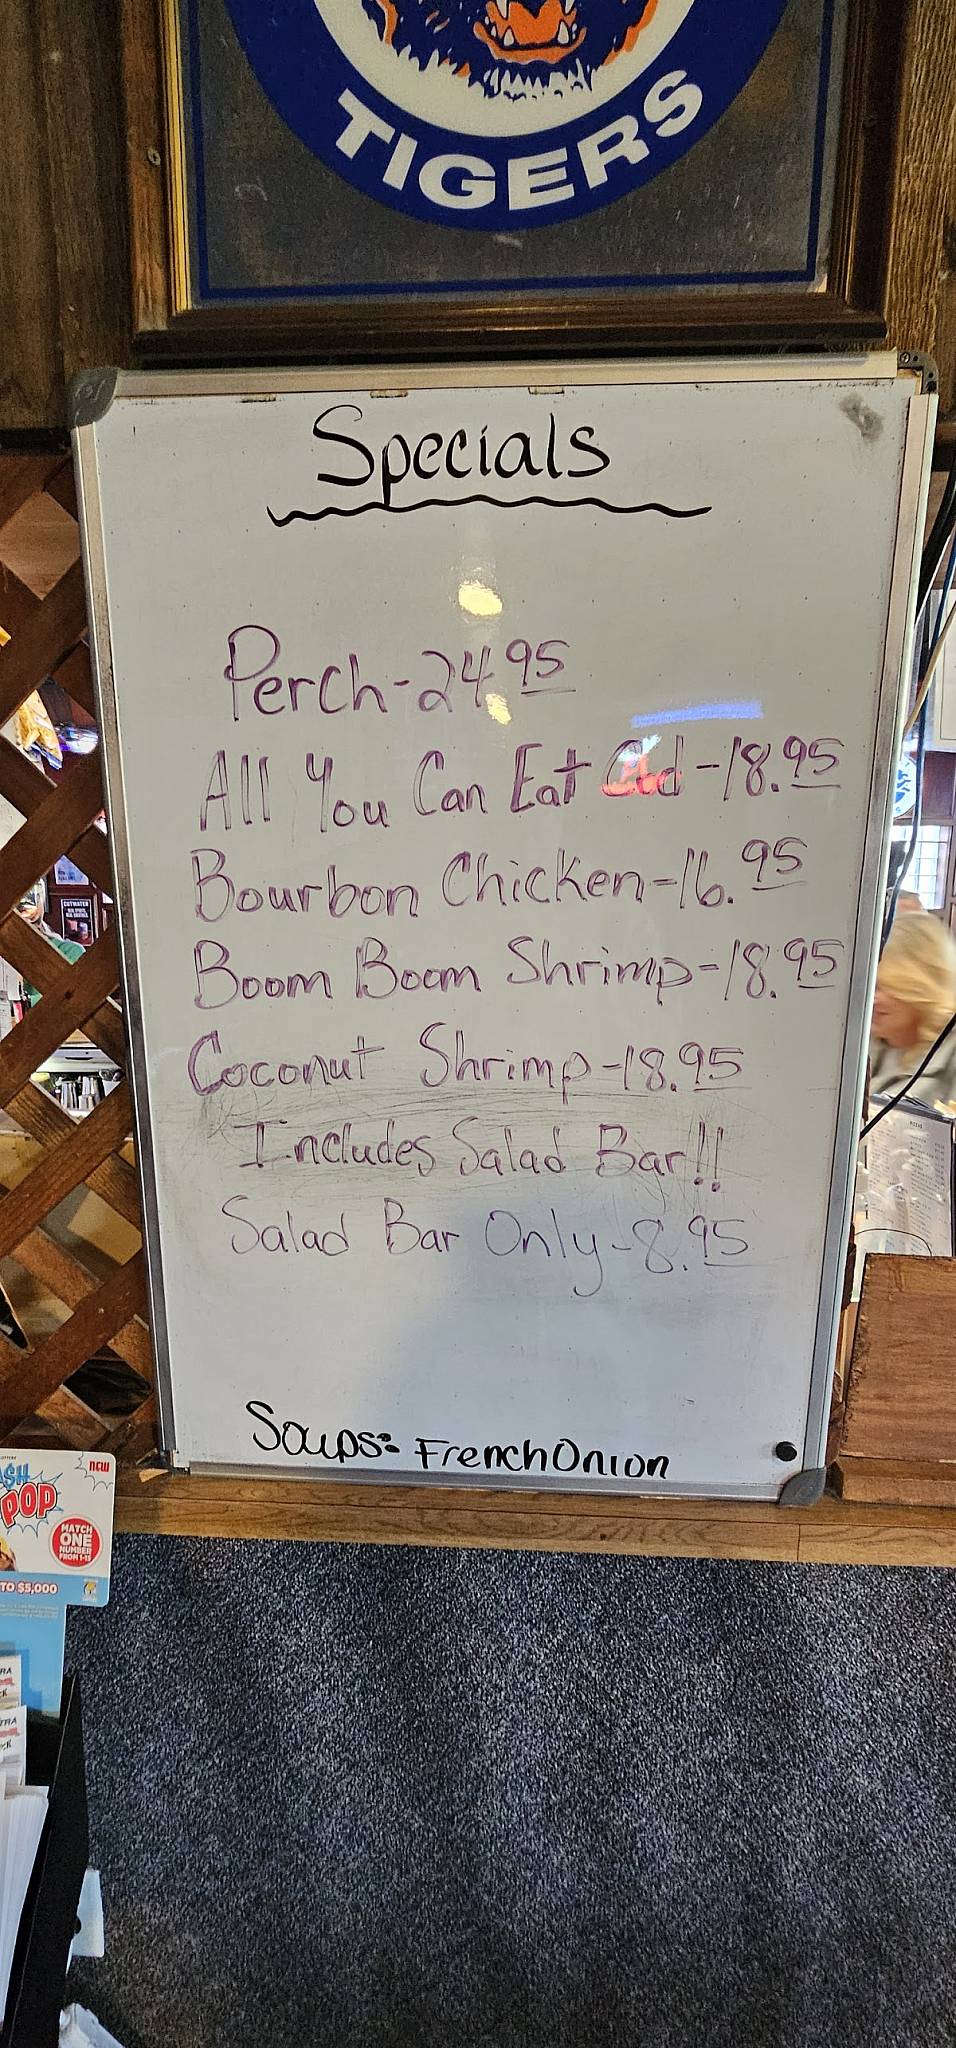 TIGERS
Specials
Perch-24 95
All You Can Eat Cod-18.95
Bourbon Chicken-16.95
Boom Boom Shrimp-18.95
Coconut Shrimp-18.95
Includes Salad Bar!!
Salad Bar Only-8.95
Soups: French Onion
NEW
POP
MATCH
ONE
NUMBER
FROM 1-15
TO $5,000